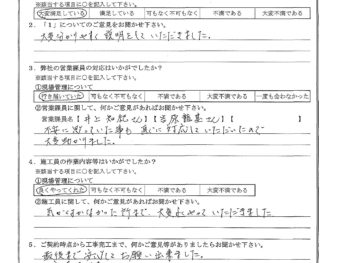 ※該当する項目に○を記入して下さい。
大変満足している 満足している 可もなく不可もなく 不満である 大変不満である
2.「1」についてのご意見をお聞かせ下さい。
大変分かりやすく説明をしていただきました。
3.弊社の営業線員の対応はいかがでしたか?
※該当する項目に○を記入して下さい。
①現場管理について
行き届いていた 可もなく不可もなく 不満である 大変不満である 一度も会わなかった
②営業線員に関して、何かご意見があればお聞かせ下さい。
営業線員名【井上 】【 】【 】
不安に思っていた事も 対応していただいたので
大変助かりました。
4.施工員の作業内容等はいかがでしたか?
※該当する項目に○を記入して下さい。
①現場管理について
良くやってくれた 可もなく不可もなく 不満である 大変不満である
②施工員に関して、何かご意見があればお聞かせ下さい。
気がつかなかった所まで、大変 いただきました
5.ご契約時点から工事完工まで、何かご意見等がありましたらお聞かせ下さい。
最後まで安心してお願い出来ました。